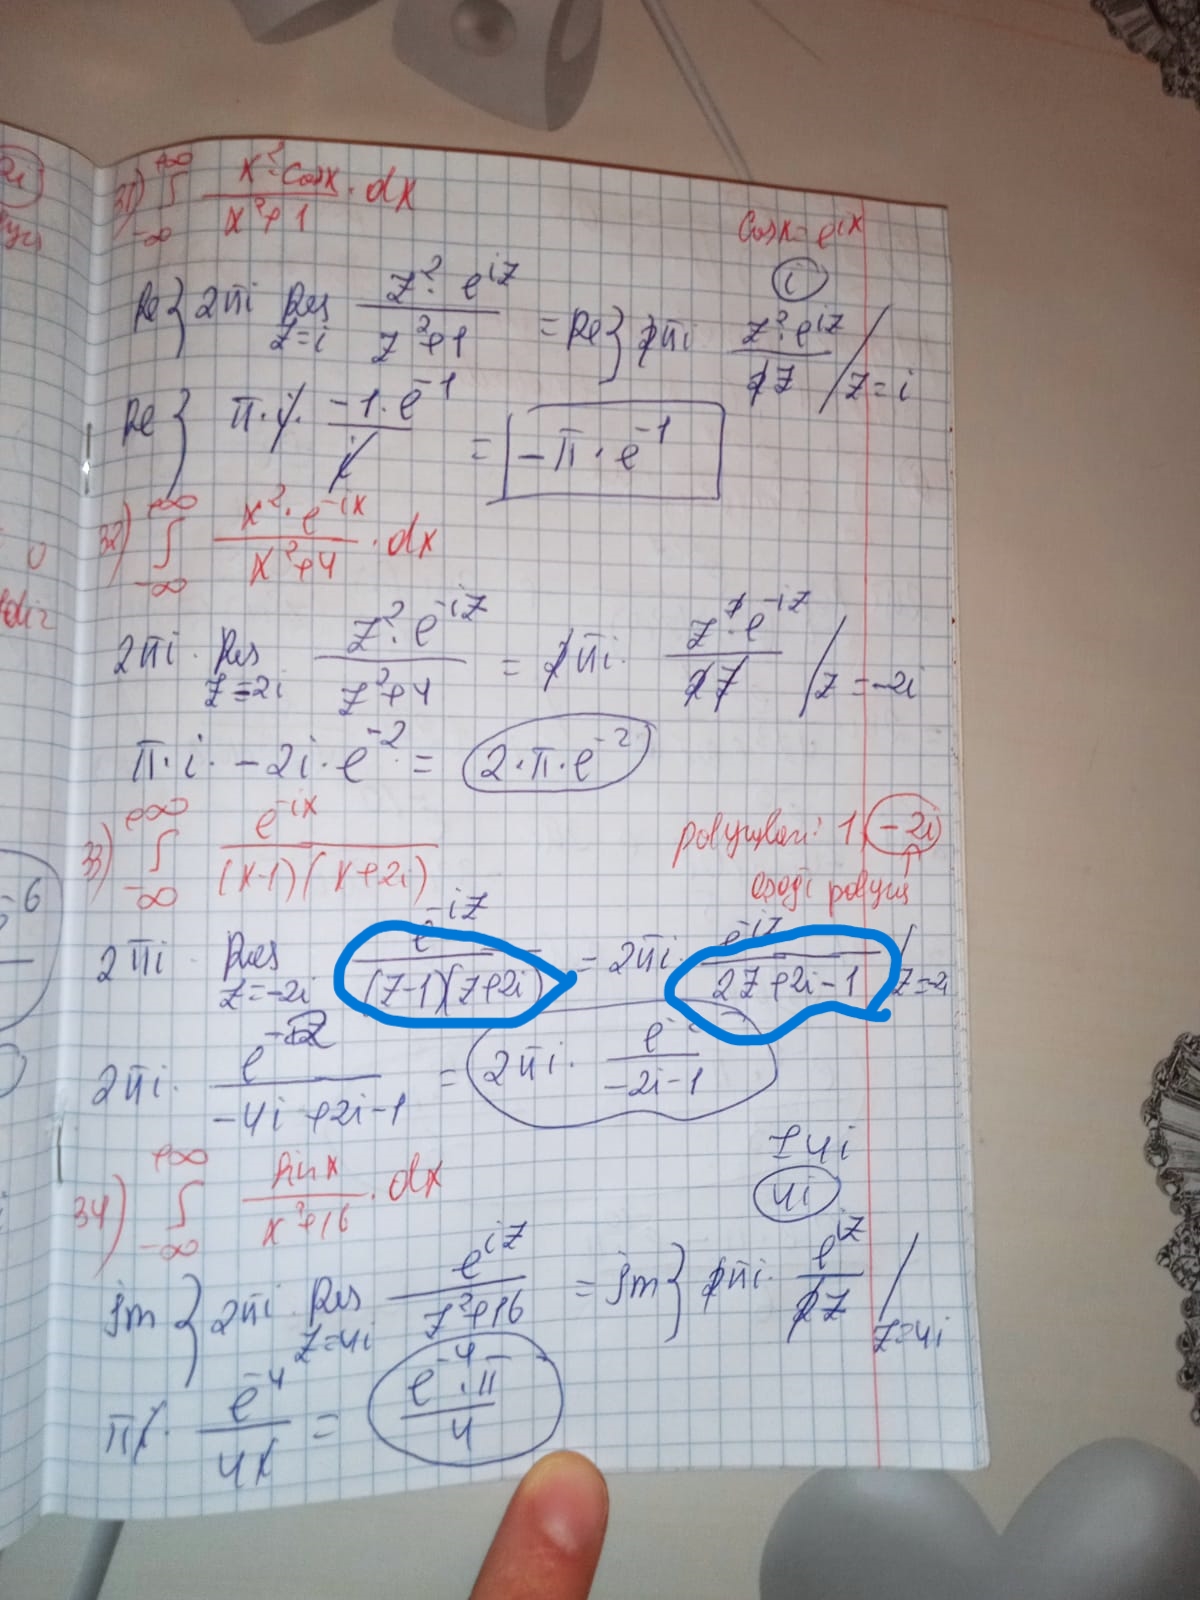 31) ∫_{-∞}^{+∞} x²·cosx / x²+1 · dx
cosx= e^{ix}
i
Re} 2πi Res_{z=i} z²·e^{iz} / z²+1 = Re} 2πi z²·e^{iz} / 2z /_{z=i}
Re} π·i· -1·e^{-1} / i = -π·e^{-1}
32) ∫_{-∞}^{+∞} x²·e^{-ix} / x²+4 · dx
2πi· Res_{z=-2i} z²·e^{-iz} / z²+4 = 2πi· z²·e^{-iz} / 2z /_{z=-2i}
π·i· -2i·e^{-2} = 2·π·e^{-2}
33) ∫_{-∞}^{+∞} e^{-ix} / (x-1)(x+2i)
1, -2i
2πi· Res_{z=-2i} e^{-iz} / (z-1)(z+2i) = 2πi· e^{-iz} / 2z+2i-1 /_{z=-2i}
2πi· e^{-2} / -4i+2i-1 = 2πi· e^{-2} / -2i-1
34) ∫_{-∞}^{+∞} sinx / x²+16 · dx
±4i
4i
Jm} 2πi· Res_{z=4i} e^{iz} / z²+16 = Jm} 2πi· e^{iz} / 2z /_{z=4i}
πi· e^{-4} / 4i = e^{-4}·π / 4